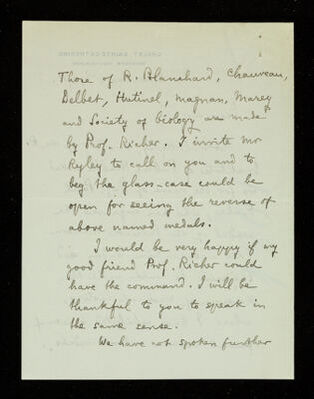 Those of R. Blanchard, Chauveau,
Delbet, Hutinel, Magnan, Marey
and Society of biology are made
by Prof. Richer. I invite Mr
Ryley to call on you and to
beg the glass-case could be
open for seeing the reverse of
above named medals.
I would be very happy if my
good friend Prof. Richer could
have the command. I will be
thankful to you to speak in
the same sense.
We have not spoken further